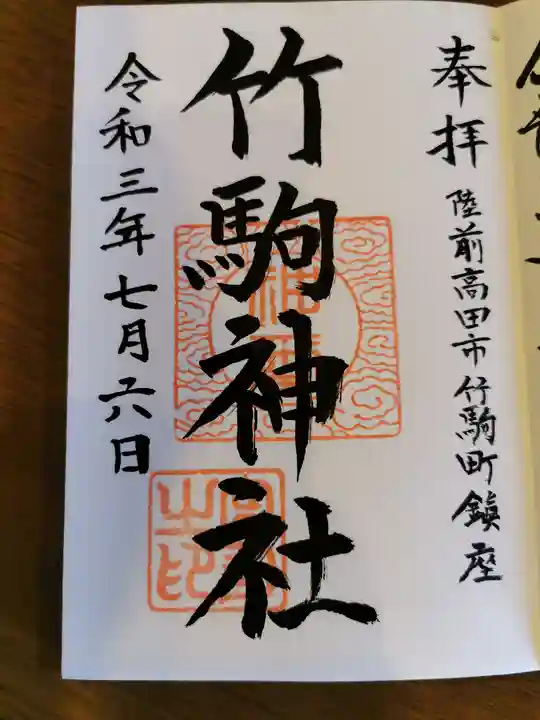 奉拝
陸前高田市竹駒町鎮座
竹駒神社
令和三年七月六日